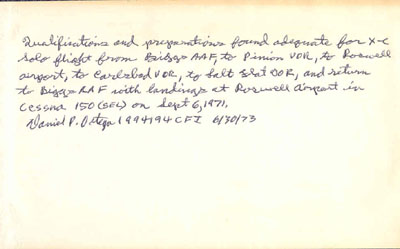 Qualifications and preparations found adequate for X-C
solo flight from Biggs AAF, to Pinion VOR, to Roswell
airport, to Carlsbad VOR, to Salt Flat VOR, and return
to Biggs AAF with landings at Roswell airport in
Cessna 150 (SEL) on Sept 6, 1971.
Daniel P. Ortega 1994194 CFI 6/30/73